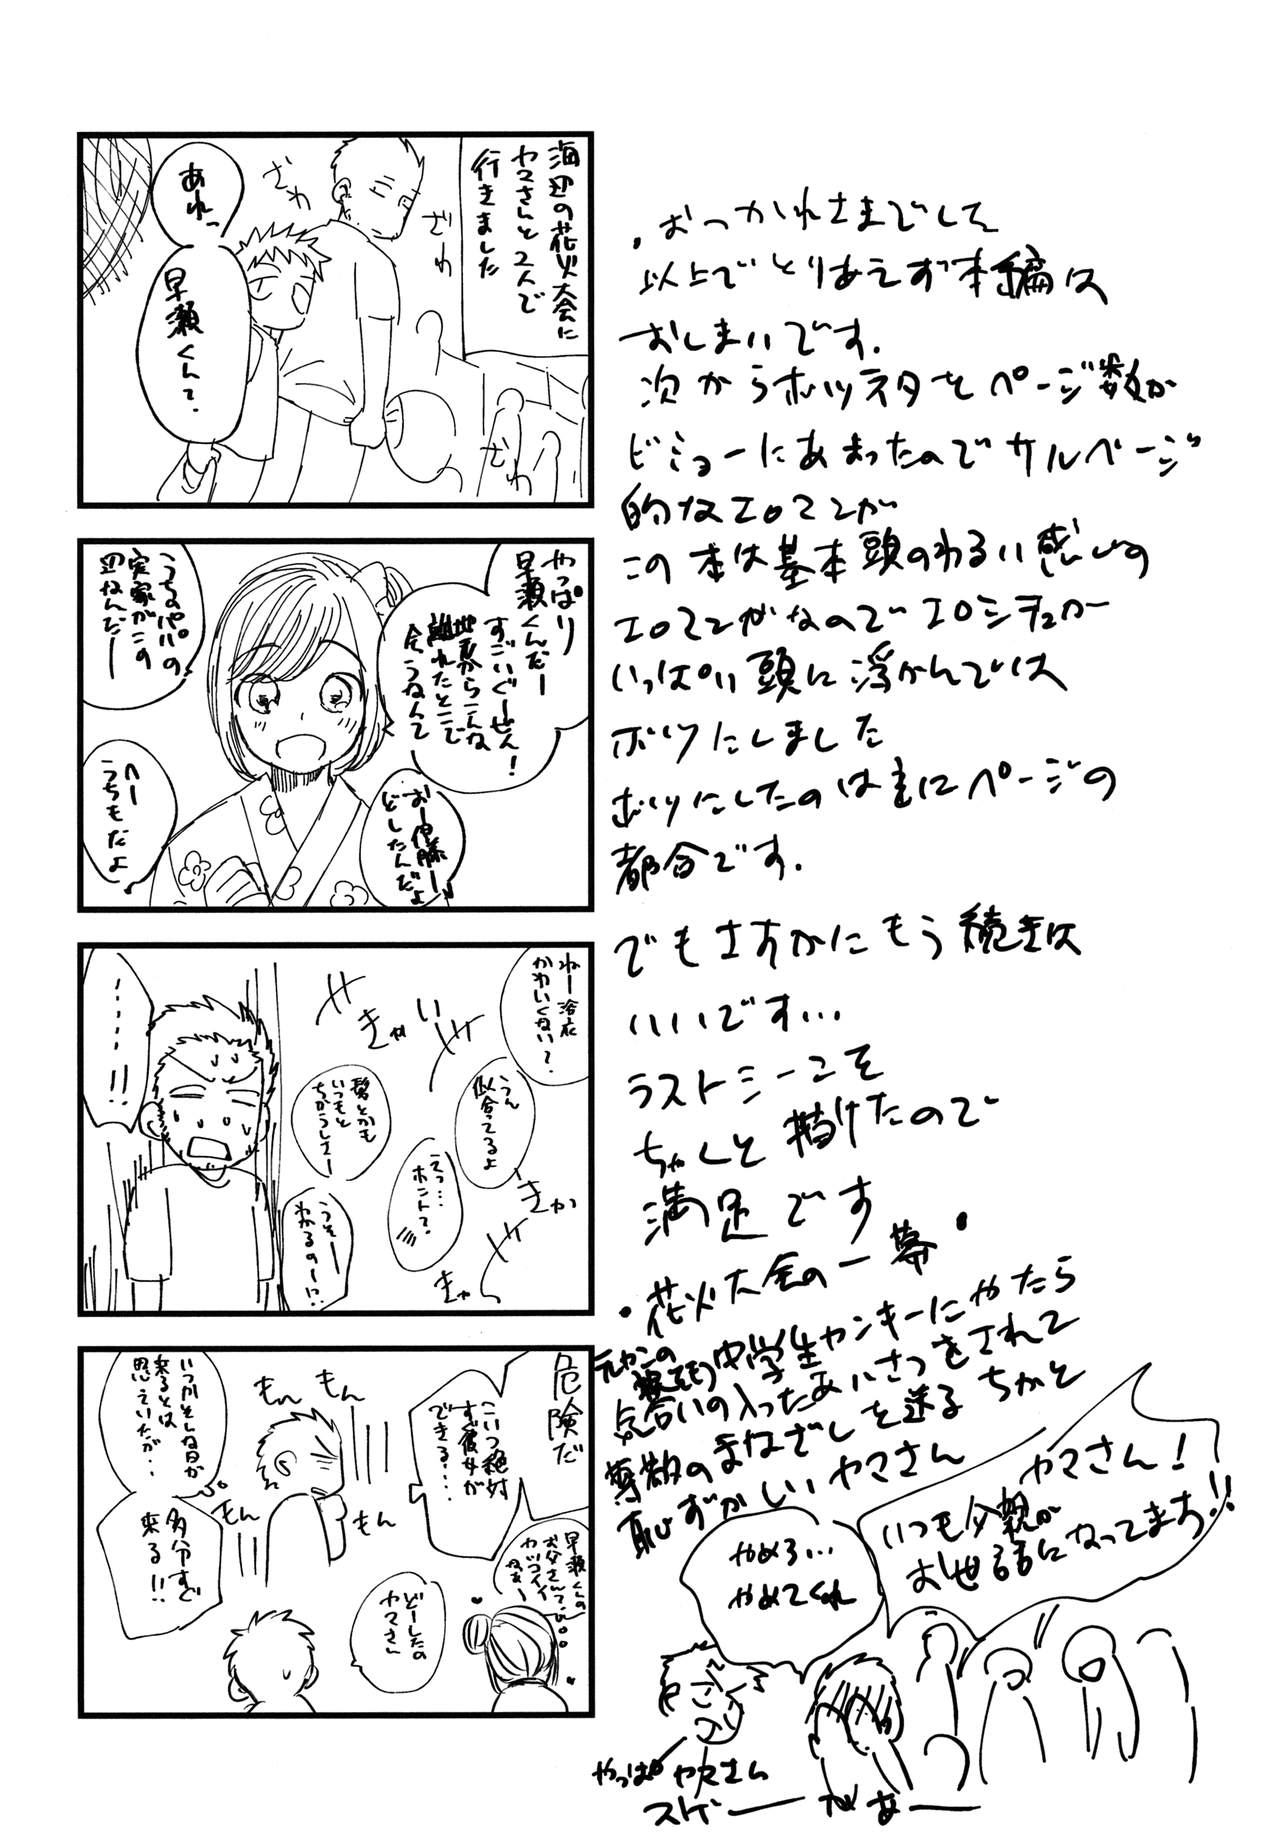 ・おつかれさまでして
以上でとりあえず本編は
おしまいです.
次からボツネタをページ数が
ビミョーにあまったのでサルベージ
的なエロマンが
この本は基本頭のわるい感じの
エロマンガなのでエロシチュがー
いっぱい頭に浮かんでは
ボツにしました
ボツにしたのは主にページの
都合です.
でもさすがにもう続きは
いいです…
ラストシーこそ
ちゃんと描けたので
満足です
・花火大会の一幕・
中学生ヤンキーにやたら
気合いの入ったあいさつをされて
尊敬のまなざしを送るちかと
恥ずかしいヤマさん
ヤマさん!
いつも父親が
お世話になってます!!
やめろ…
やめてくれ
やっぱヤマさん
スゲーーがあーー
海辺の花火大会に
ヤマさんと2人で
行きました
ざわ
ざわ
ざわ
あれっ
早瀬くんて.
やっぱり
早瀬くんだー
すごいぐーぜん!
地元からこんな
離れたとこで
会うなんて
うちのパパの
実家がこの
辺なんだー
おー伊藤ー
どしたんだよ
へー
うちもだよ
ねー浴衣
かわいくない?
うん
似合ってるよ
髪とかも
いつもと
ちがうしさー
えっ…
ホント?
うそー
わかるのー!?
きゃ
い
きゃ
きゃ
……!!
危険だ
こいつ絶対
すぐ彼女が
できる…
もん
もん
もん
もん
いつかそんな日が
来るとは
思えていたが…
多分すぐ
来る!!
早瀬くんの
お父さんて
カッコイイ
ねぇー
どーしたの
ヤマさん